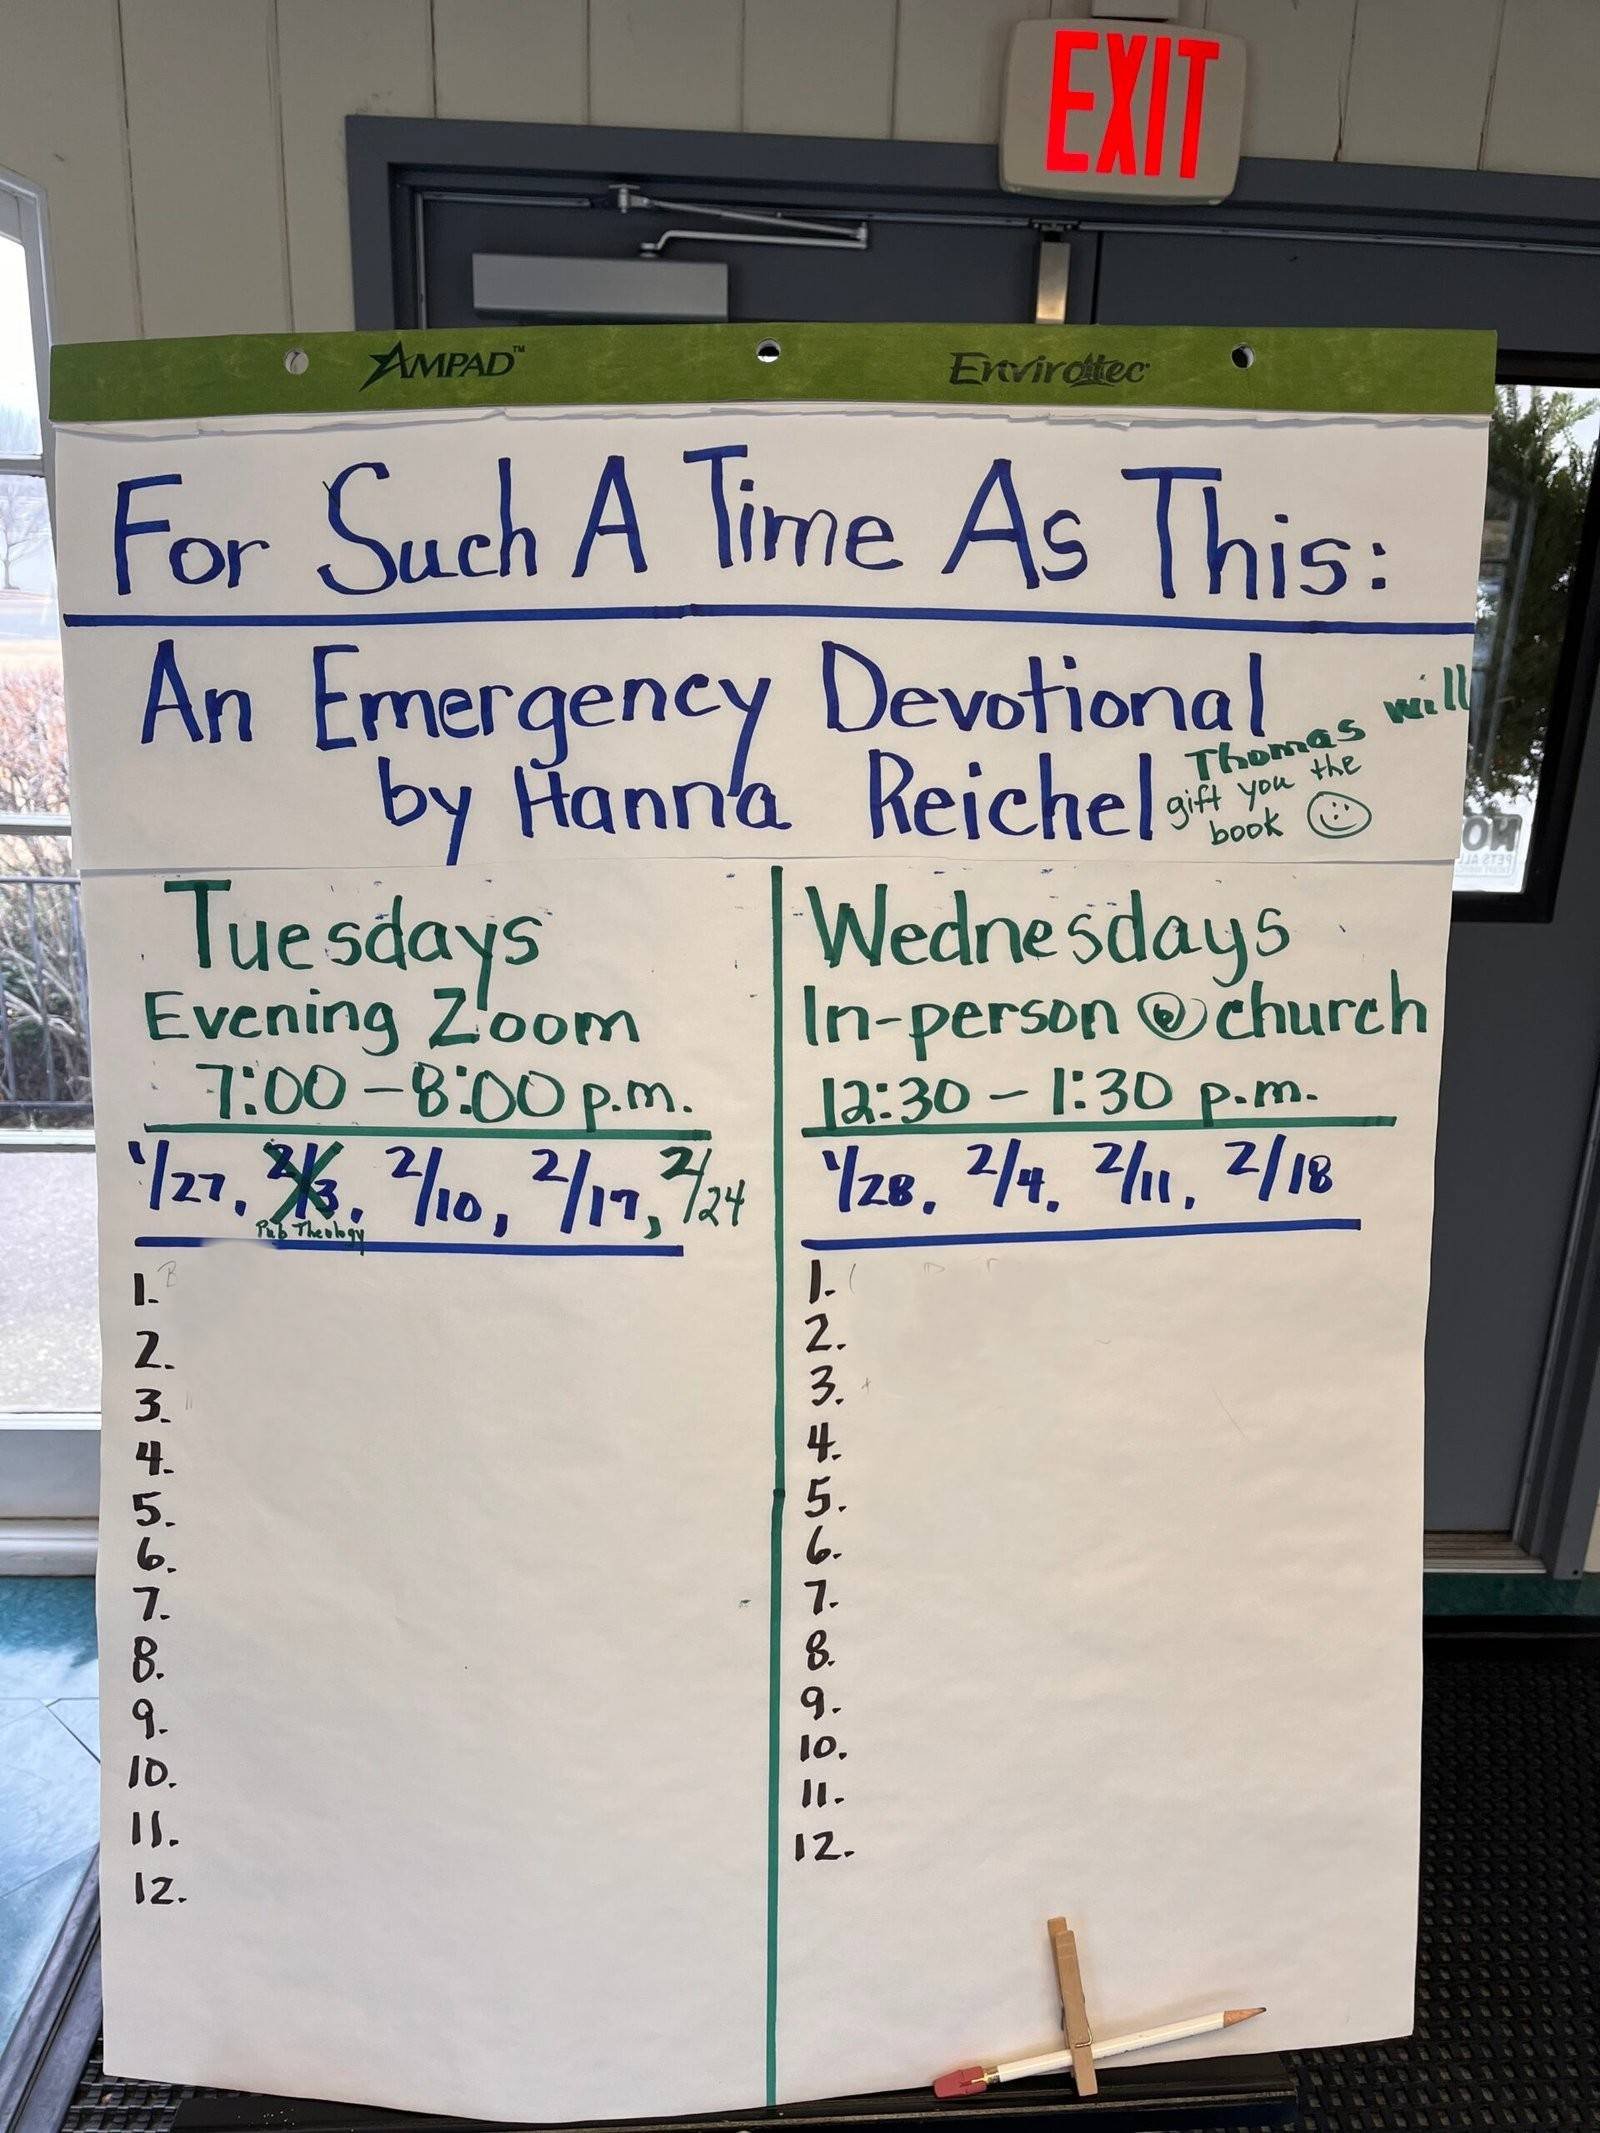 EXIT
AMPAD™
Envirotec
For Such A Time As This:
An Emergency Devotional
by Hanna Reichel
Thomas will
gift you the
book
Tuesdays
Evening Zoom
7:00 – 8:00 p.m.
1/27, 2/3, 2/10, 2/17, 2/24
Pub Theology
1.
2.
3.
4.
5.
6.
7.
8.
9.
10.
11.
12.
Wednesdays
In-person @ church
12:30 – 1:30 p.m.
1/28, 2/4, 2/11, 2/18
1.
2.
3.
4.
5.
6.
7.
8.
9.
10.
11.
12.